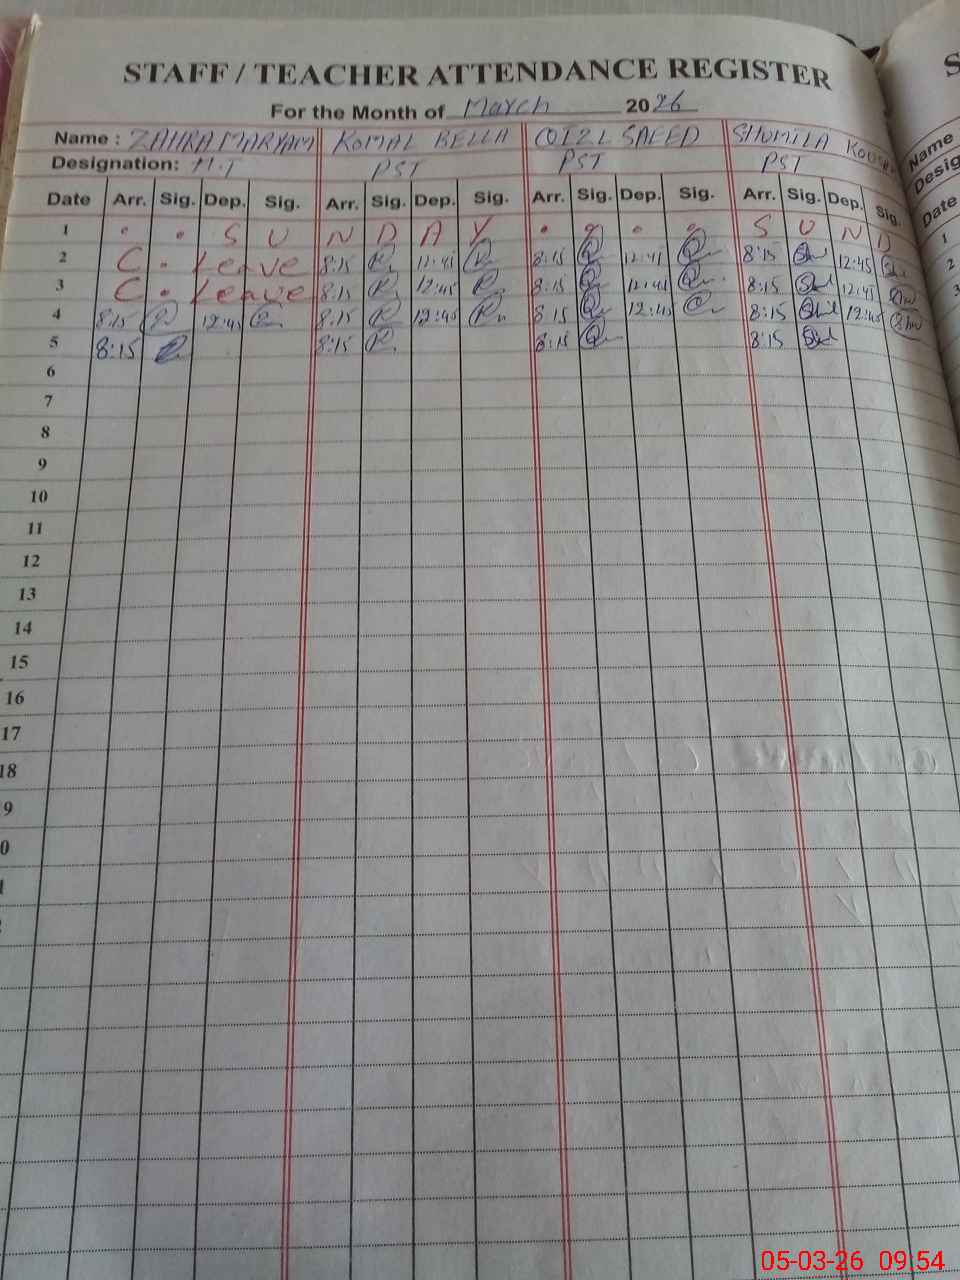 STAFF / TEACHER ATTENDANCE REGISTER
For the Month of March 2026
Name : ZAHRA MARYAM KOMAL BELLA QIZL SAEED SHUMILA
Designation: H.T PST PST PST
Date Arr. Sig. Dep. Sig. Arr. Sig. Dep. Sig. Arr. Sig. Dep. Sig. Arr. Sig. Dep. Sig.
1 S U N D A Y S U N D
2 C. Leave 8:15 12:45 8:15 12:45 8:15 12:45
3 C. Leave 8:15 12:45 8:15 12:45 8:15 12:45
4 8:15 12:45 8:15 12:45 8:15 12:45 8:15 12:45
5 8:15 8:15 8:15 8:15
6
7
8
9
10
11
12
13
14
15
16
17
18
9
0
1
Name
Desig
Date
1
2
3
05-03-26 09:54